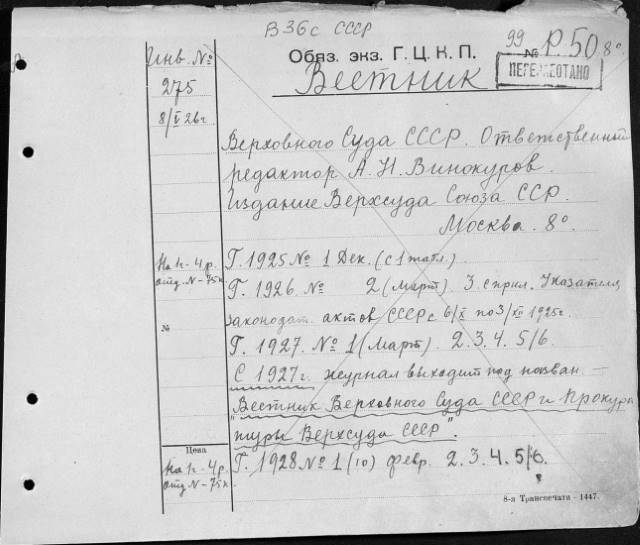 В36с СССР
Инв. №
275
8/V 26г
Обяз. экз. Г. Ц. К. П.
99 № Р. 50 8°
Вестник
ПЕРЕ
Верховного Суда СССР. Ответственный
редактор А. Н. Винокуров.
Издание Верхсуда Союза ССР.
Москва. 8°.
На г. - 4 р.
отд. № - 75 к
Г. 1925 № 1 Дек. (с 1 табл.)
Г. 1926. № 2 (март) 3 с прил. Указателя
законодат. актов СССР с 6/X по 31/XII 1925г.
№
Г. 1927. № 1 (Март). 2. 3. 4. 5/6.
С 1927г. журнал выходит под назван —
"Вестник Верховного Суда СССР и Прокура
туры Верхсуда СССР".
Цена
На г. - 4 р.
отд. № - 75 к.
Г. 1928 № 1 (10) февр. 2. 3. 4. 5/6.
8-я Транспечать - 1447.